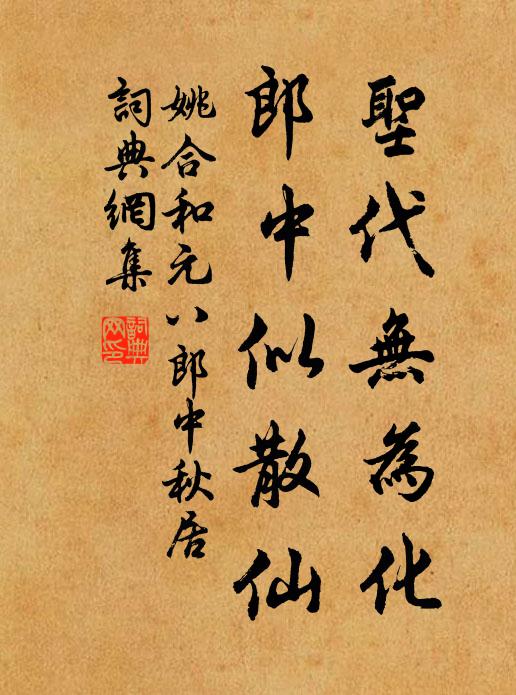 聖代無為化
郎中似散仙
姚合和元八郎中秋居
詞典網集
詞典
网印